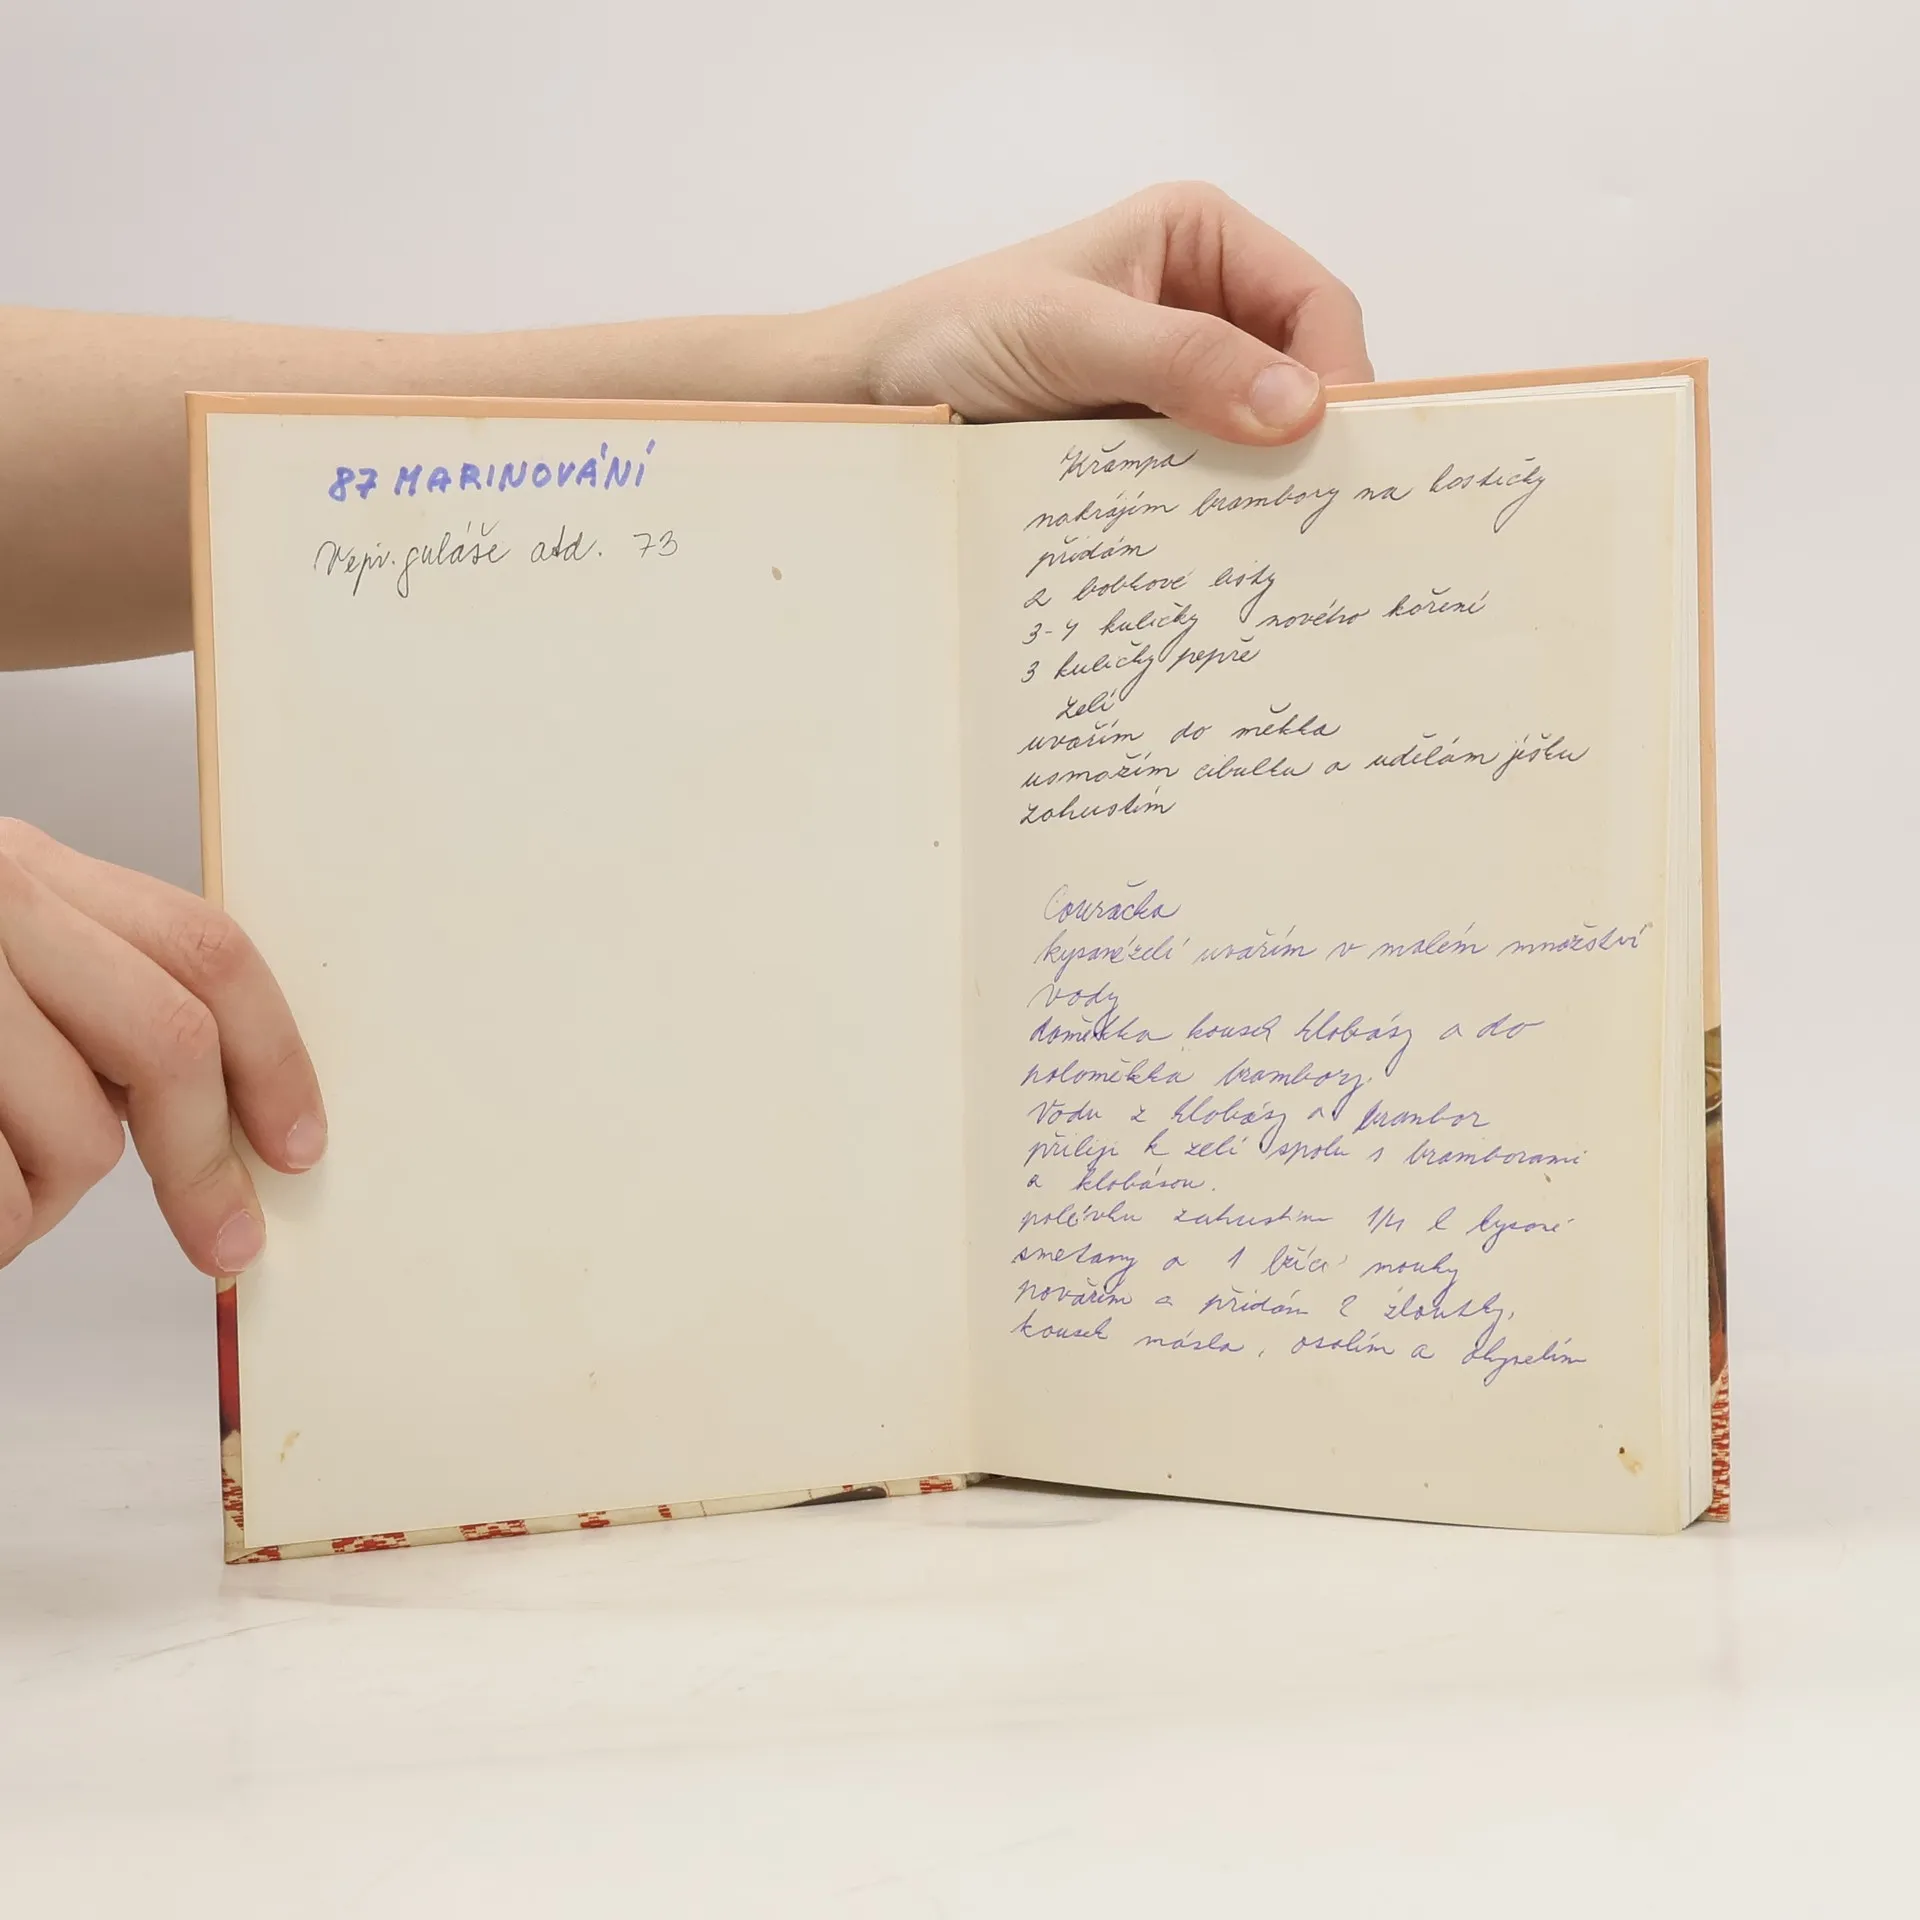 87 MARINOVÁNÍ
Vepř. guláše atd. 73
Křampa
nakrájím brambory na kostičky
přidám
2 bobkové listy
3-4 kuličky nového koření
3 kuličky pepře
zelí
uvařím do měkka
usmažím cibulku a udělám jíšku
zahustím
Couračka
kysané zelí uvařím v malém množství
vody
doměkka kousek klobásy a do
poloměkka brambory.
Vodu z klobásy a brambor
přiliji k zelí spolu s bramborami
a klobásou.
polévku zahustím 1/4 l kysané
smetany a 1 lžící mouky
povařím a přidám 2 žloutky,
kousek másla, osolím a